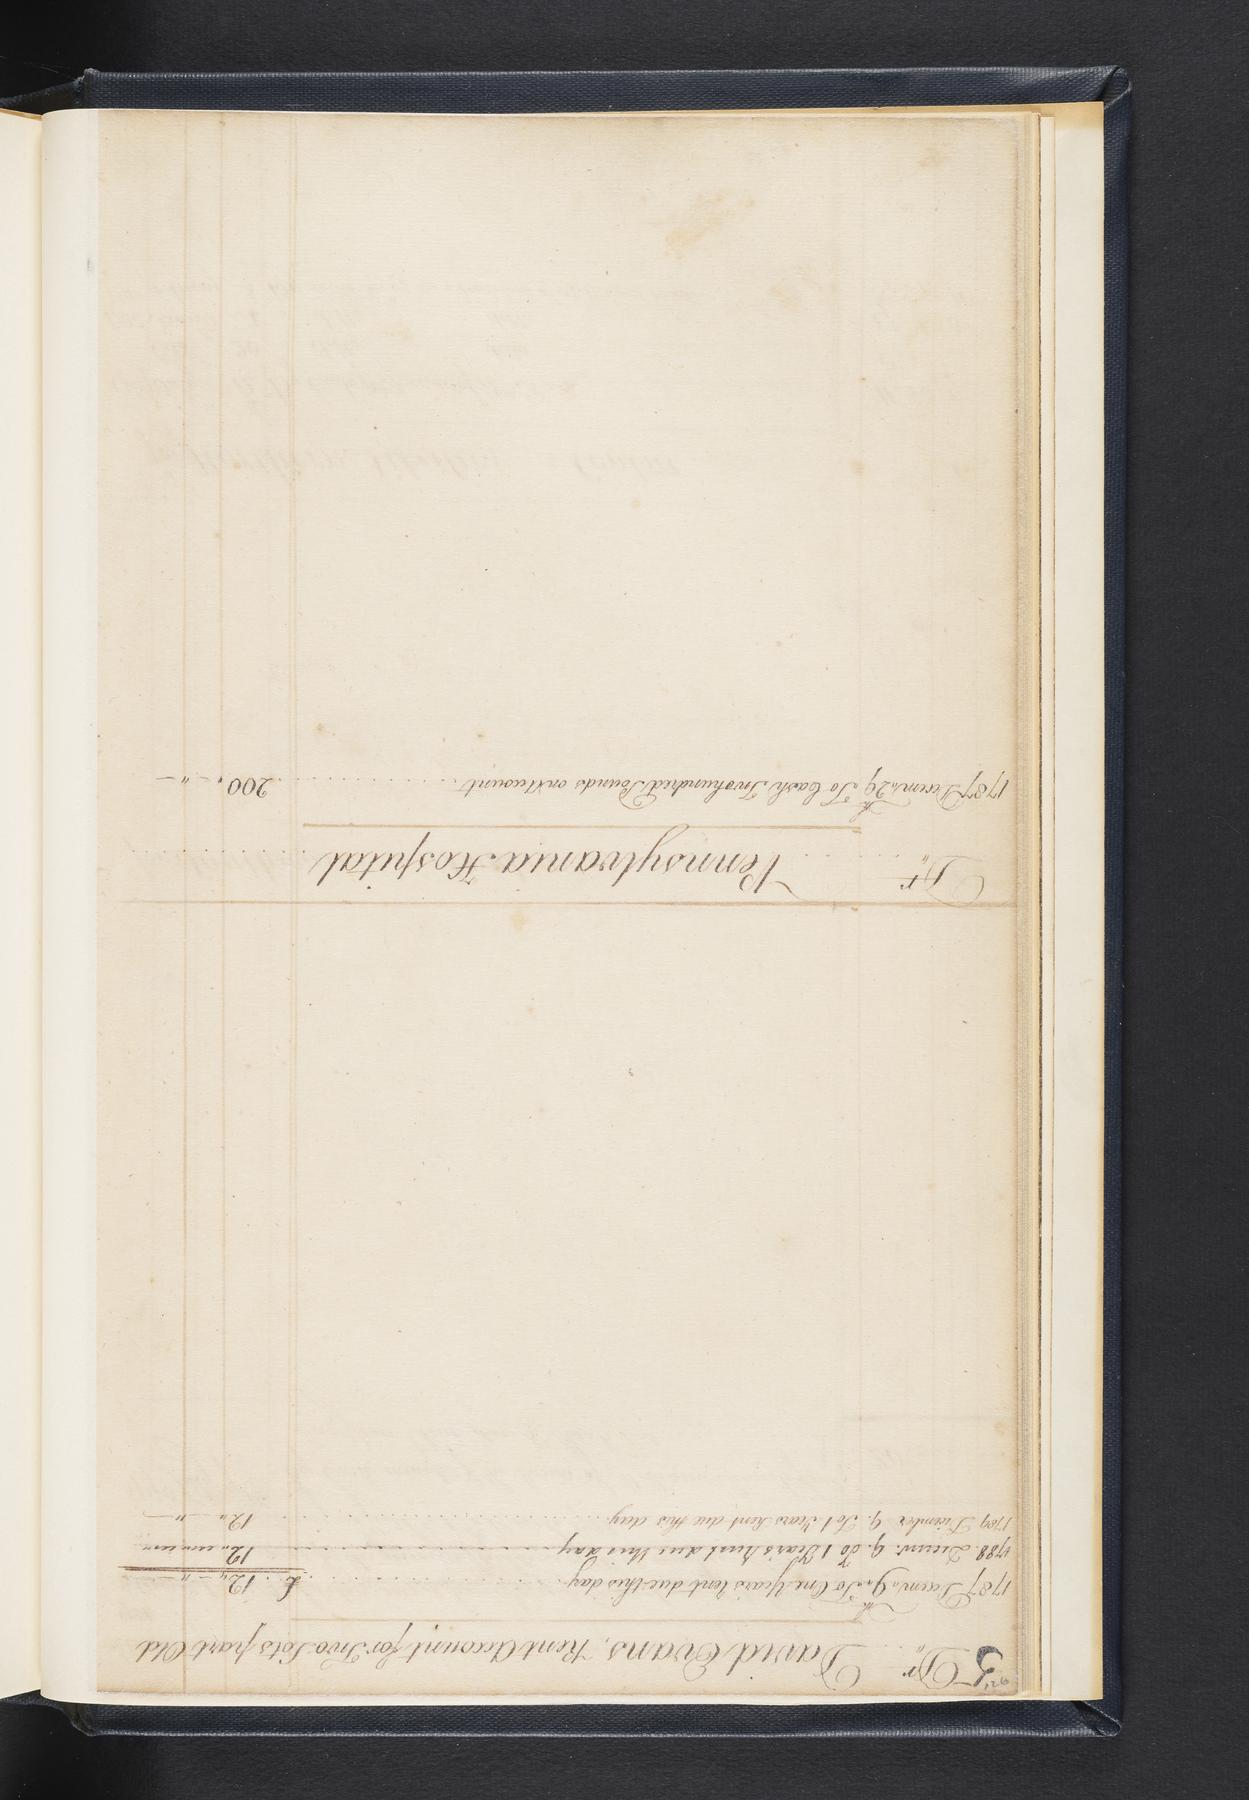 126
5 Dr,, David Evans, Rent Account for Two Lots part Old
1787 Decem,, 9th,, To One Years Rent due this day £ 12 ,, – ,, –
1788 Decemr. 9. To 1 Years Rent due this day 12
1789 December 9 To 1 Years Rent due this day 12 ,, – ,, –
Dr,, Pennsylvania Hospital
1787 Decem,, 29th To Cash Two hundred Pounds on Account 200 ,, – ,, –